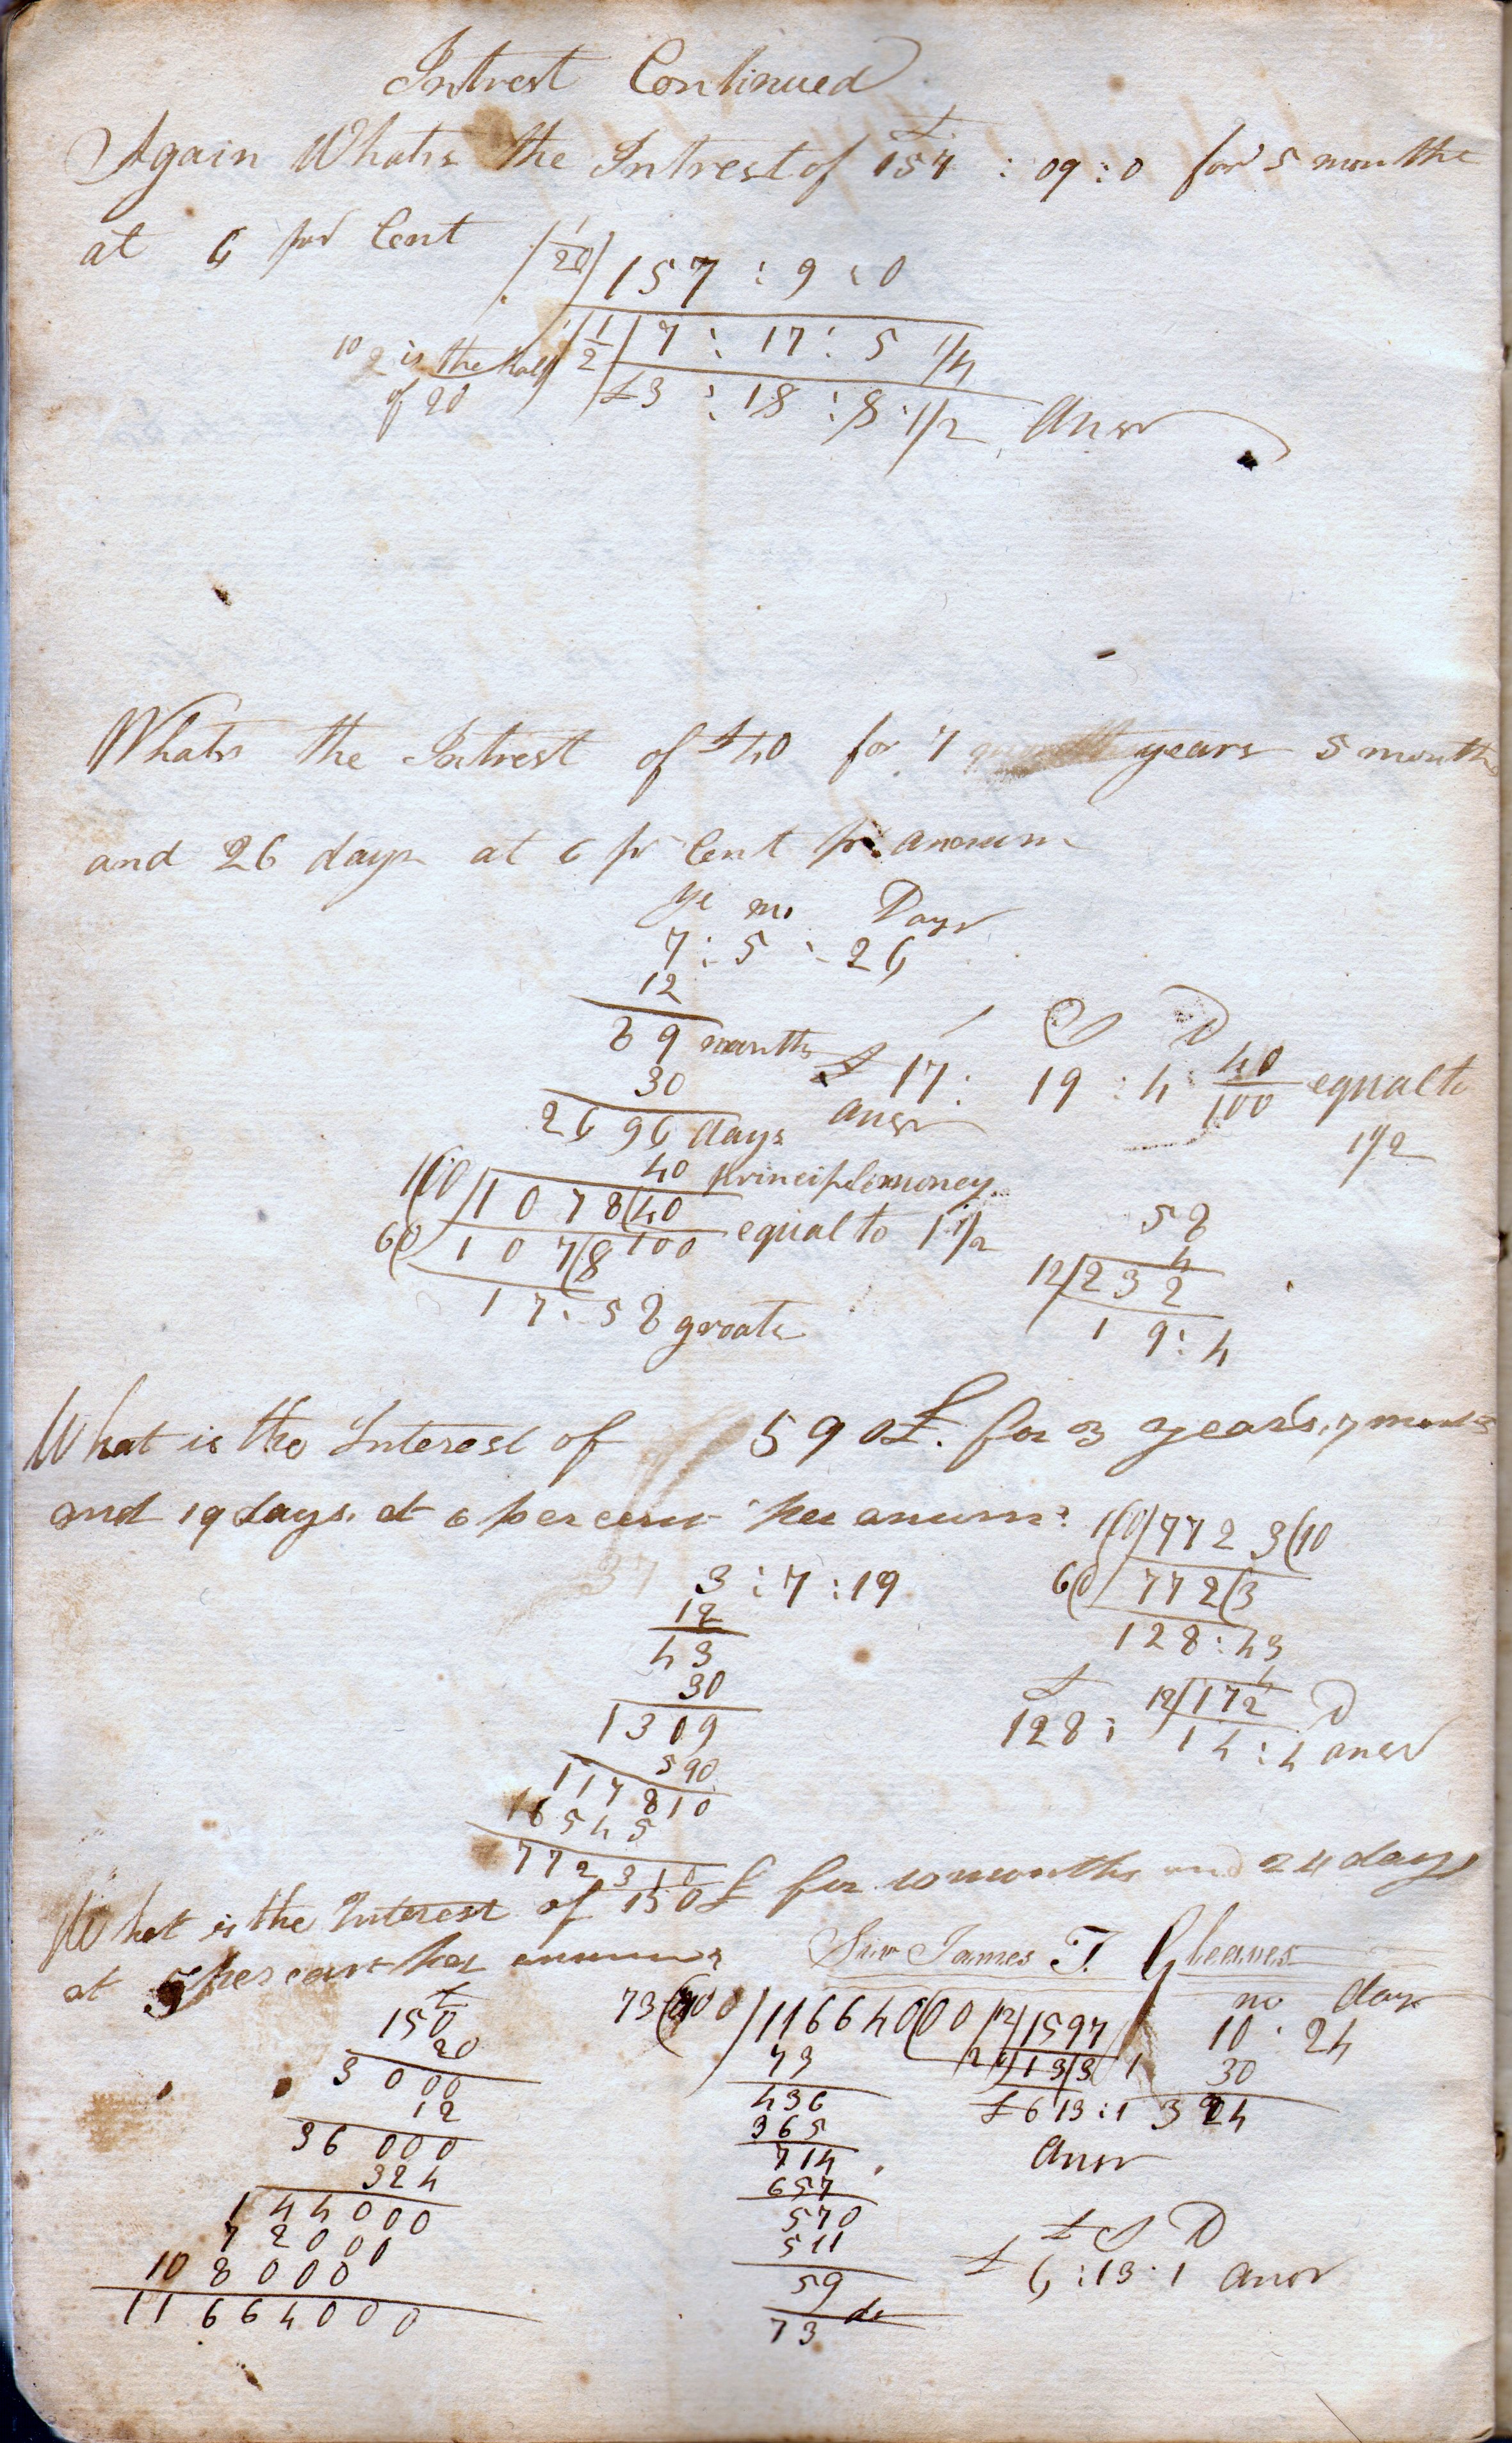 Intrest Continued
Again Whats the Intrest of £157 : 09 : 0 for 5 months
at 6 per Cent
1/20 | 157 : 9 : 0
10 is the half of 20 | 1/2 | 7 : 17 : 5 1/4
£3 : 18 : 8 1/2 Answ
Whats the Intrest of £40 for 7 years 5 months
and 26 days at 6 pr Cent pr annum
ye mo Days
7 : 5 : 26
12
89 months
30
2696 days
40 principle money
100 | 1078(40
60 | 107(8 100 equal to 1 1/2
17 : 58 groats
S D
£17 : 19 : 4 : 40/100 equal to
answ
1 1/2
58
4
12/232
19 : 4
What is the Interest of 590£. for 3 years, 7 months
and 19 days, at 6 per cent per anum?
3 : 7 : 19
12
43
30
1309
590
117810
6545
772310
1(00/7723(10
6(0/772(3
128 : 43
4
£ 12/172 D
128 : 14 : 4 answ
What is the Interest of 150£ for 10 months and 24 days
at 5 per cent per annum?
James T. Gleaves
£
150
20
3000
12
36000
324
144000
72000
108000
11664000
73(000)/11664000
73
436
365
714
657
570
511
59
73
12/1597
20/133 1
£6 13 : 1
Answ
mo days
10 : 24
30
324
£ S D
£ 6 : 13 : 1 answ